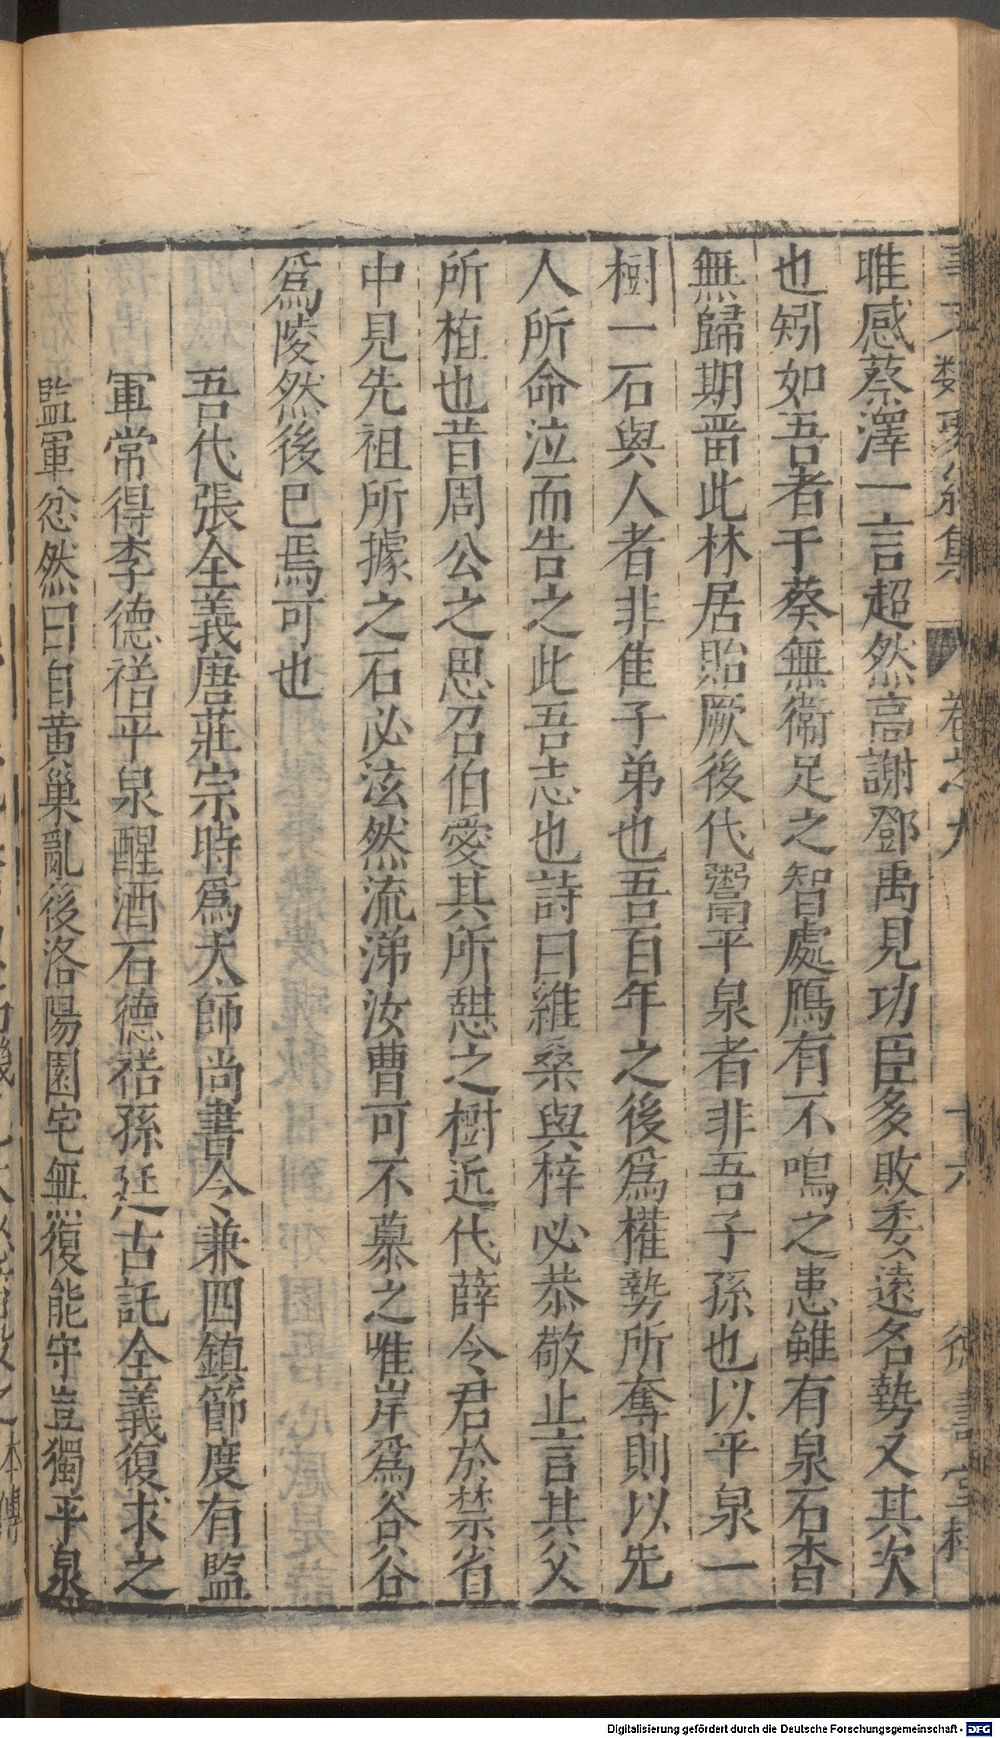 卷之九
唯感蔡澤一言超然高謝鄧禹見功臣多敗委遠名勢又其次
也矧如吾者于葵無衞足之智處鴈有不鳴之患雖有泉石杳
無歸期畱此林居貽厥後代鬻平泉者非吾子孫也以平泉一
樹一石與人者非佳子弟也吾百年之後爲權勢所奪則以先
人所命泣而告之此吾志也詩曰維桑與梓必恭敬止言其父
所植也昔周公之思召伯愛其所憇之樹近代薛令君於禁省
中見先祖所據之石必泫然流涕汝曹可不慕之唯岸爲谷谷
爲陵然後已焉可也
吾代張全義唐莊宗時爲太師尚書令兼四鎮節度有監
軍常得李德裕平泉醒酒石德裕孫延古託全義復求之
監軍忿然曰自黃巢亂後洛陽園宅無復能守豈獨平泉
Digitalisierung gefördert durch die Deutsche Forschungsgemeinschaft - DFG